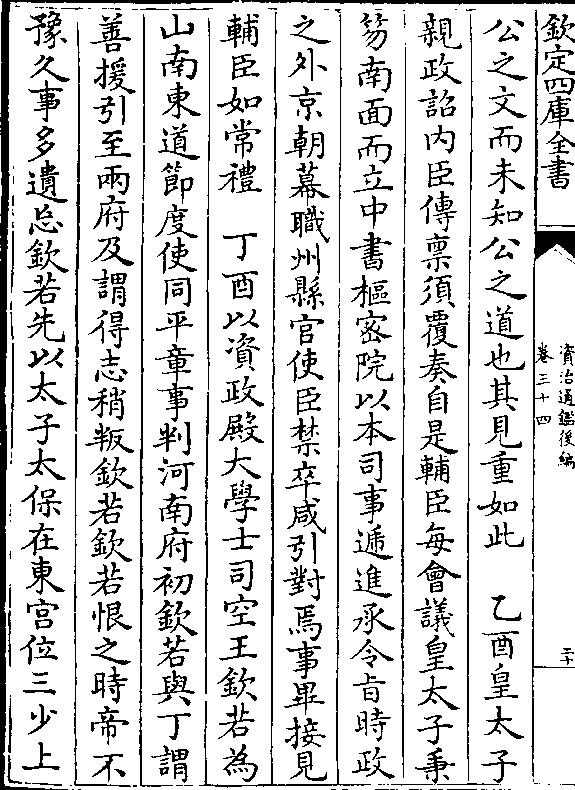 欽定四庫全書
資治通鑑後編
卷三十四
二十
公之文而未知公之道也其見重如此　乙酉皇太子
親政詔内臣傳稟須覆奏自是輔臣每會議皇太子秉
笏南面而立中書樞密院以本司事遞進承令旨時政
之外京朝幕職州縣官使臣禁卒咸引對焉事畢接見
輔臣如常禮　丁酉以資政殿大學士司空王欽若為
山南東道節度使同平章事判河南府初欽若與丁謂
善援引至兩府及謂得志稍叛欽若欽若恨之時帝不
豫久事多遺忘欽若先以太子太保在東宫位三少上